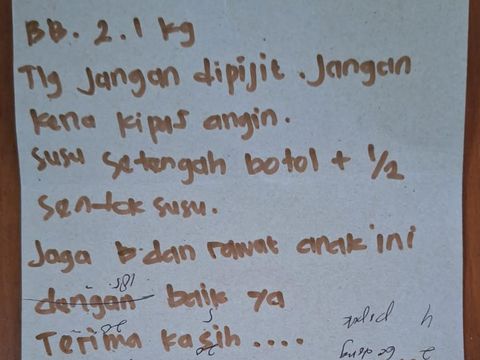 BB. 2.1 kg
Tlg jangan dipijit. Jangan
kena kipas angin.
susu setengah botol + 1/2
sendok susu.
Jaga dan rawat anak ini
dengan baik ya
Terima kasih....